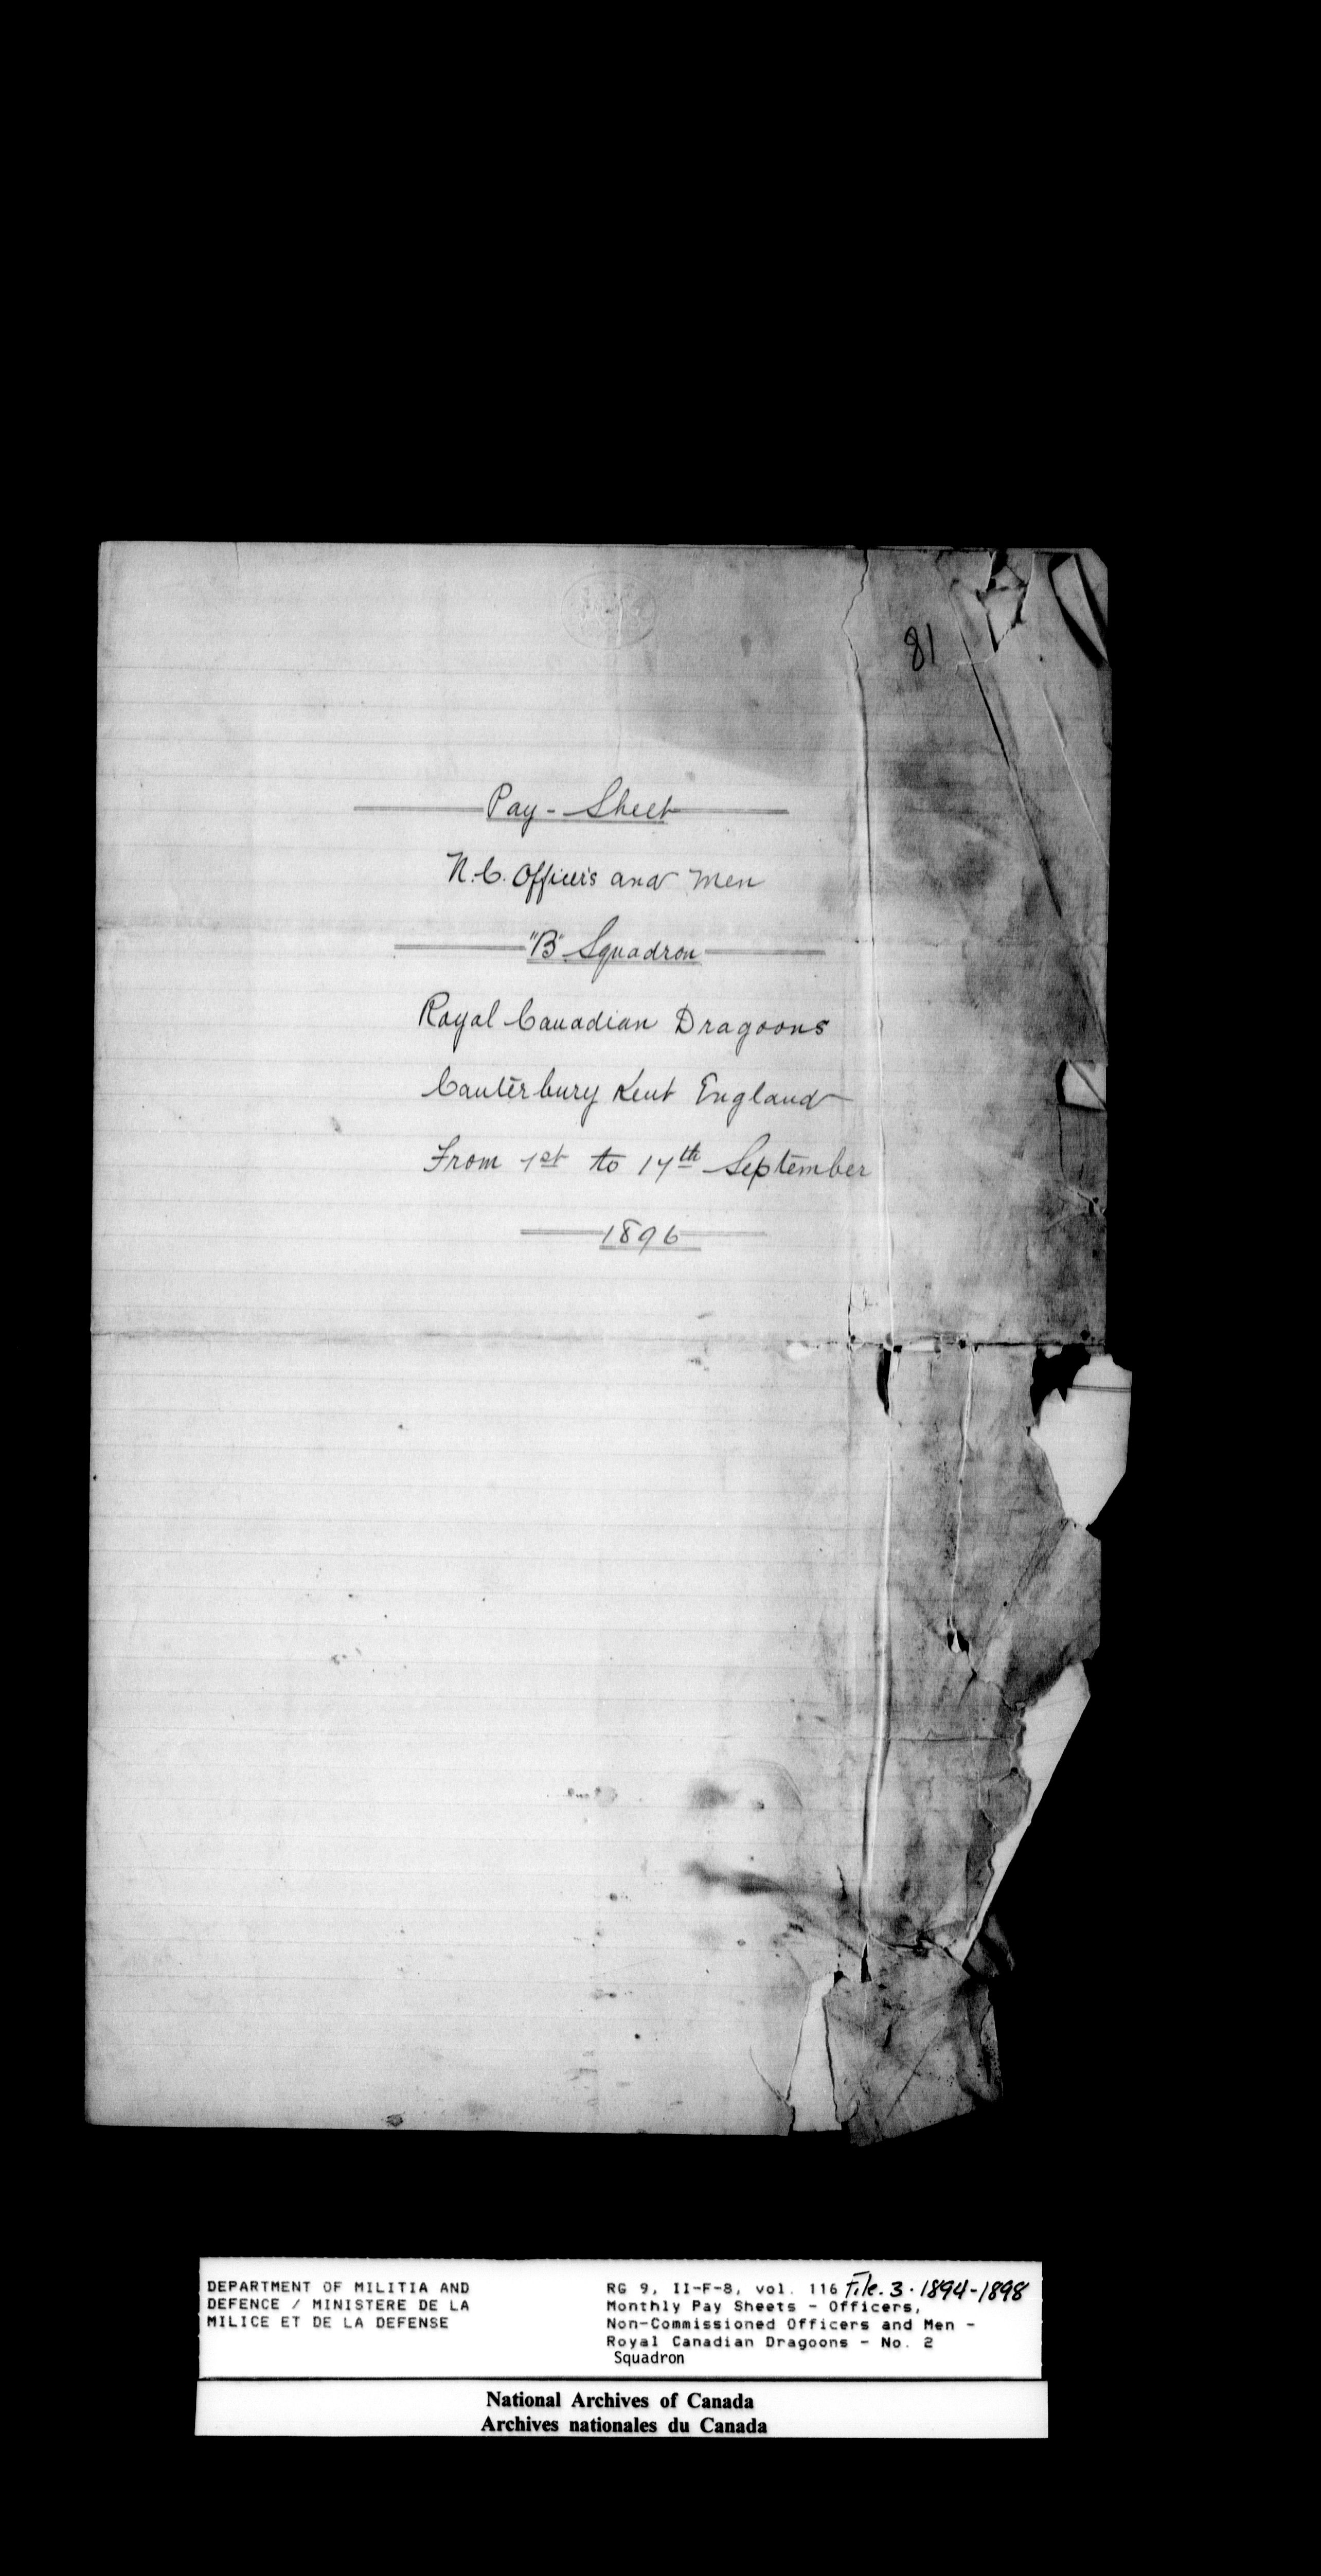 81
Pay - Sheet
N.C. Officers and Men
"B" Squadron
Royal Canadian Dragoons
Canterbury Kent England
From 1st to 17th September
1896
DEPARTMENT OF MILITIA AND
DEFENCE / MINISTERE DE LA
MILICE ET DE LA DEFENSE
RG 9, II-F-8, vol. 116 File. 3. 1894-1898
Monthly Pay Sheets - Officers,
Non-Commissioned Officers and Men -
Royal Canadian Dragoons - No. 2
Squadron
National Archives of Canada
Archives nationales du Canada